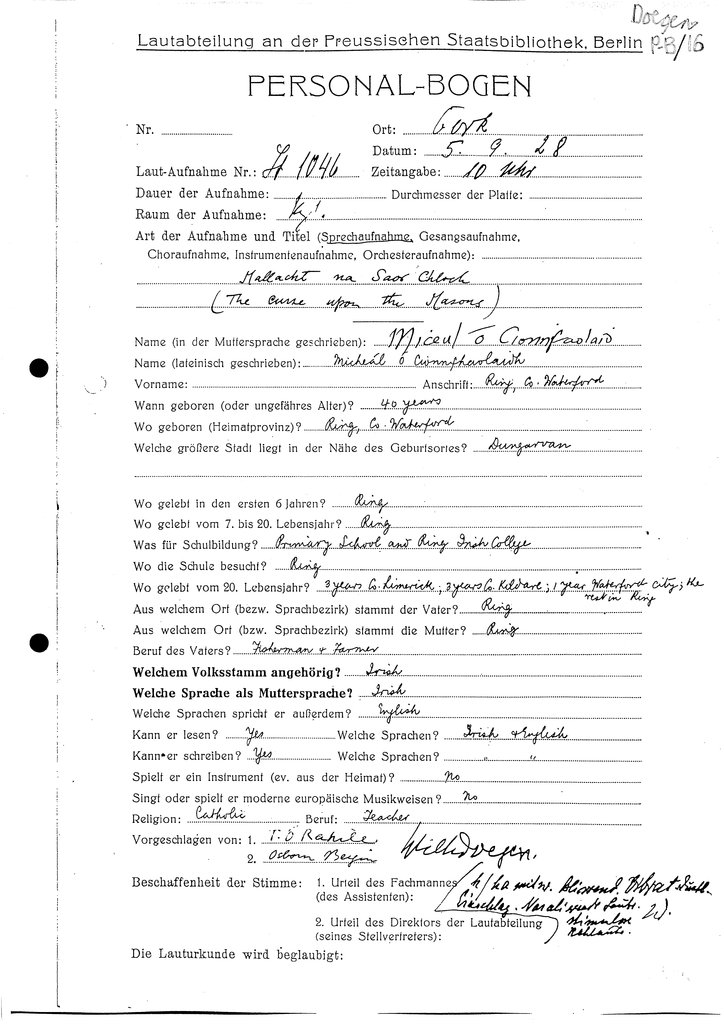 Doegen
Lautabteilung an der Preussischen Staatsbibliothek, Berlin P-B/16
PERSONAL-BOGEN
Nr. Ort: Cork
Datum: 5. 9. 28
Laut-Aufnahme Nr.: 1046 Zeitangabe: 10 Uhr
Dauer der Aufnahme: Durchmesser der Platte:
Raum der Aufnahme:
Art der Aufnahme und Titel (Sprechaufnahme, Gesangsaufnahme,
Choraufnahme, Instrumentenaufnahme, Orchesteraufnahme):
Mallacht na Saor Chloch
(The curse upon the Masons)
Name (in der Muttersprache geschrieben): Míceul Ó Cionnfaolaid
Name (lateinisch geschrieben): Micheál ó Cionnfhaolaidh
Vorname: Anschrift: Ring, Co. Waterford
Wann geboren (oder ungefähres Alter)? 40 years
Wo geboren (Heimatprovinz)? Ring, Co. Waterford
Welche größere Stadt liegt in der Nähe des Geburtsortes? Dungarvan
Wo gelebt in den ersten 6 Jahren? Ring
Wo gelebt vom 7. bis 20. Lebensjahr? Ring
Was für Schulbildung? Primary School and Ring Irish College
Wo die Schule besucht? Ring
Wo gelebt vom 20. Lebensjahr? 3 years Co. Limerick; 3 years Co. Kildare; 1 year Waterford City; the
rest in Ring
Aus welchem Ort (bzw. Sprachbezirk) stammt der Vater? Ring
Aus welchem Ort (bzw. Sprachbezirk) stammt die Mutter? Ring
Beruf des Vaters? Fisherman & Farmer
Welchem Volksstamm angehörig? Irish
Welche Sprache als Muttersprache? Irish
Welche Sprachen spricht er außerdem? English
Kann er lesen? Yes Welche Sprachen? Irish & English
Kann er schreiben? Yes Welche Sprachen? " "
Spielt er ein Instrument (ev. aus der Heimat)? No
Singt oder spielt er moderne europäische Musikweisen? No
Religion: Catholic Beruf: Teacher
Vorgeschlagen von: 1. T. Ó Raḟile Wilh. Doegen.
2. Osborn Bergin
Beschaffenheit der Stimme: 1. Urteil des Fachmannes
(des Assistenten):
2. Urteil des Direktors der Lautabteilung stimmlose
(seines Stellvertreters):
Die Lauturkunde wird beglaubigt: